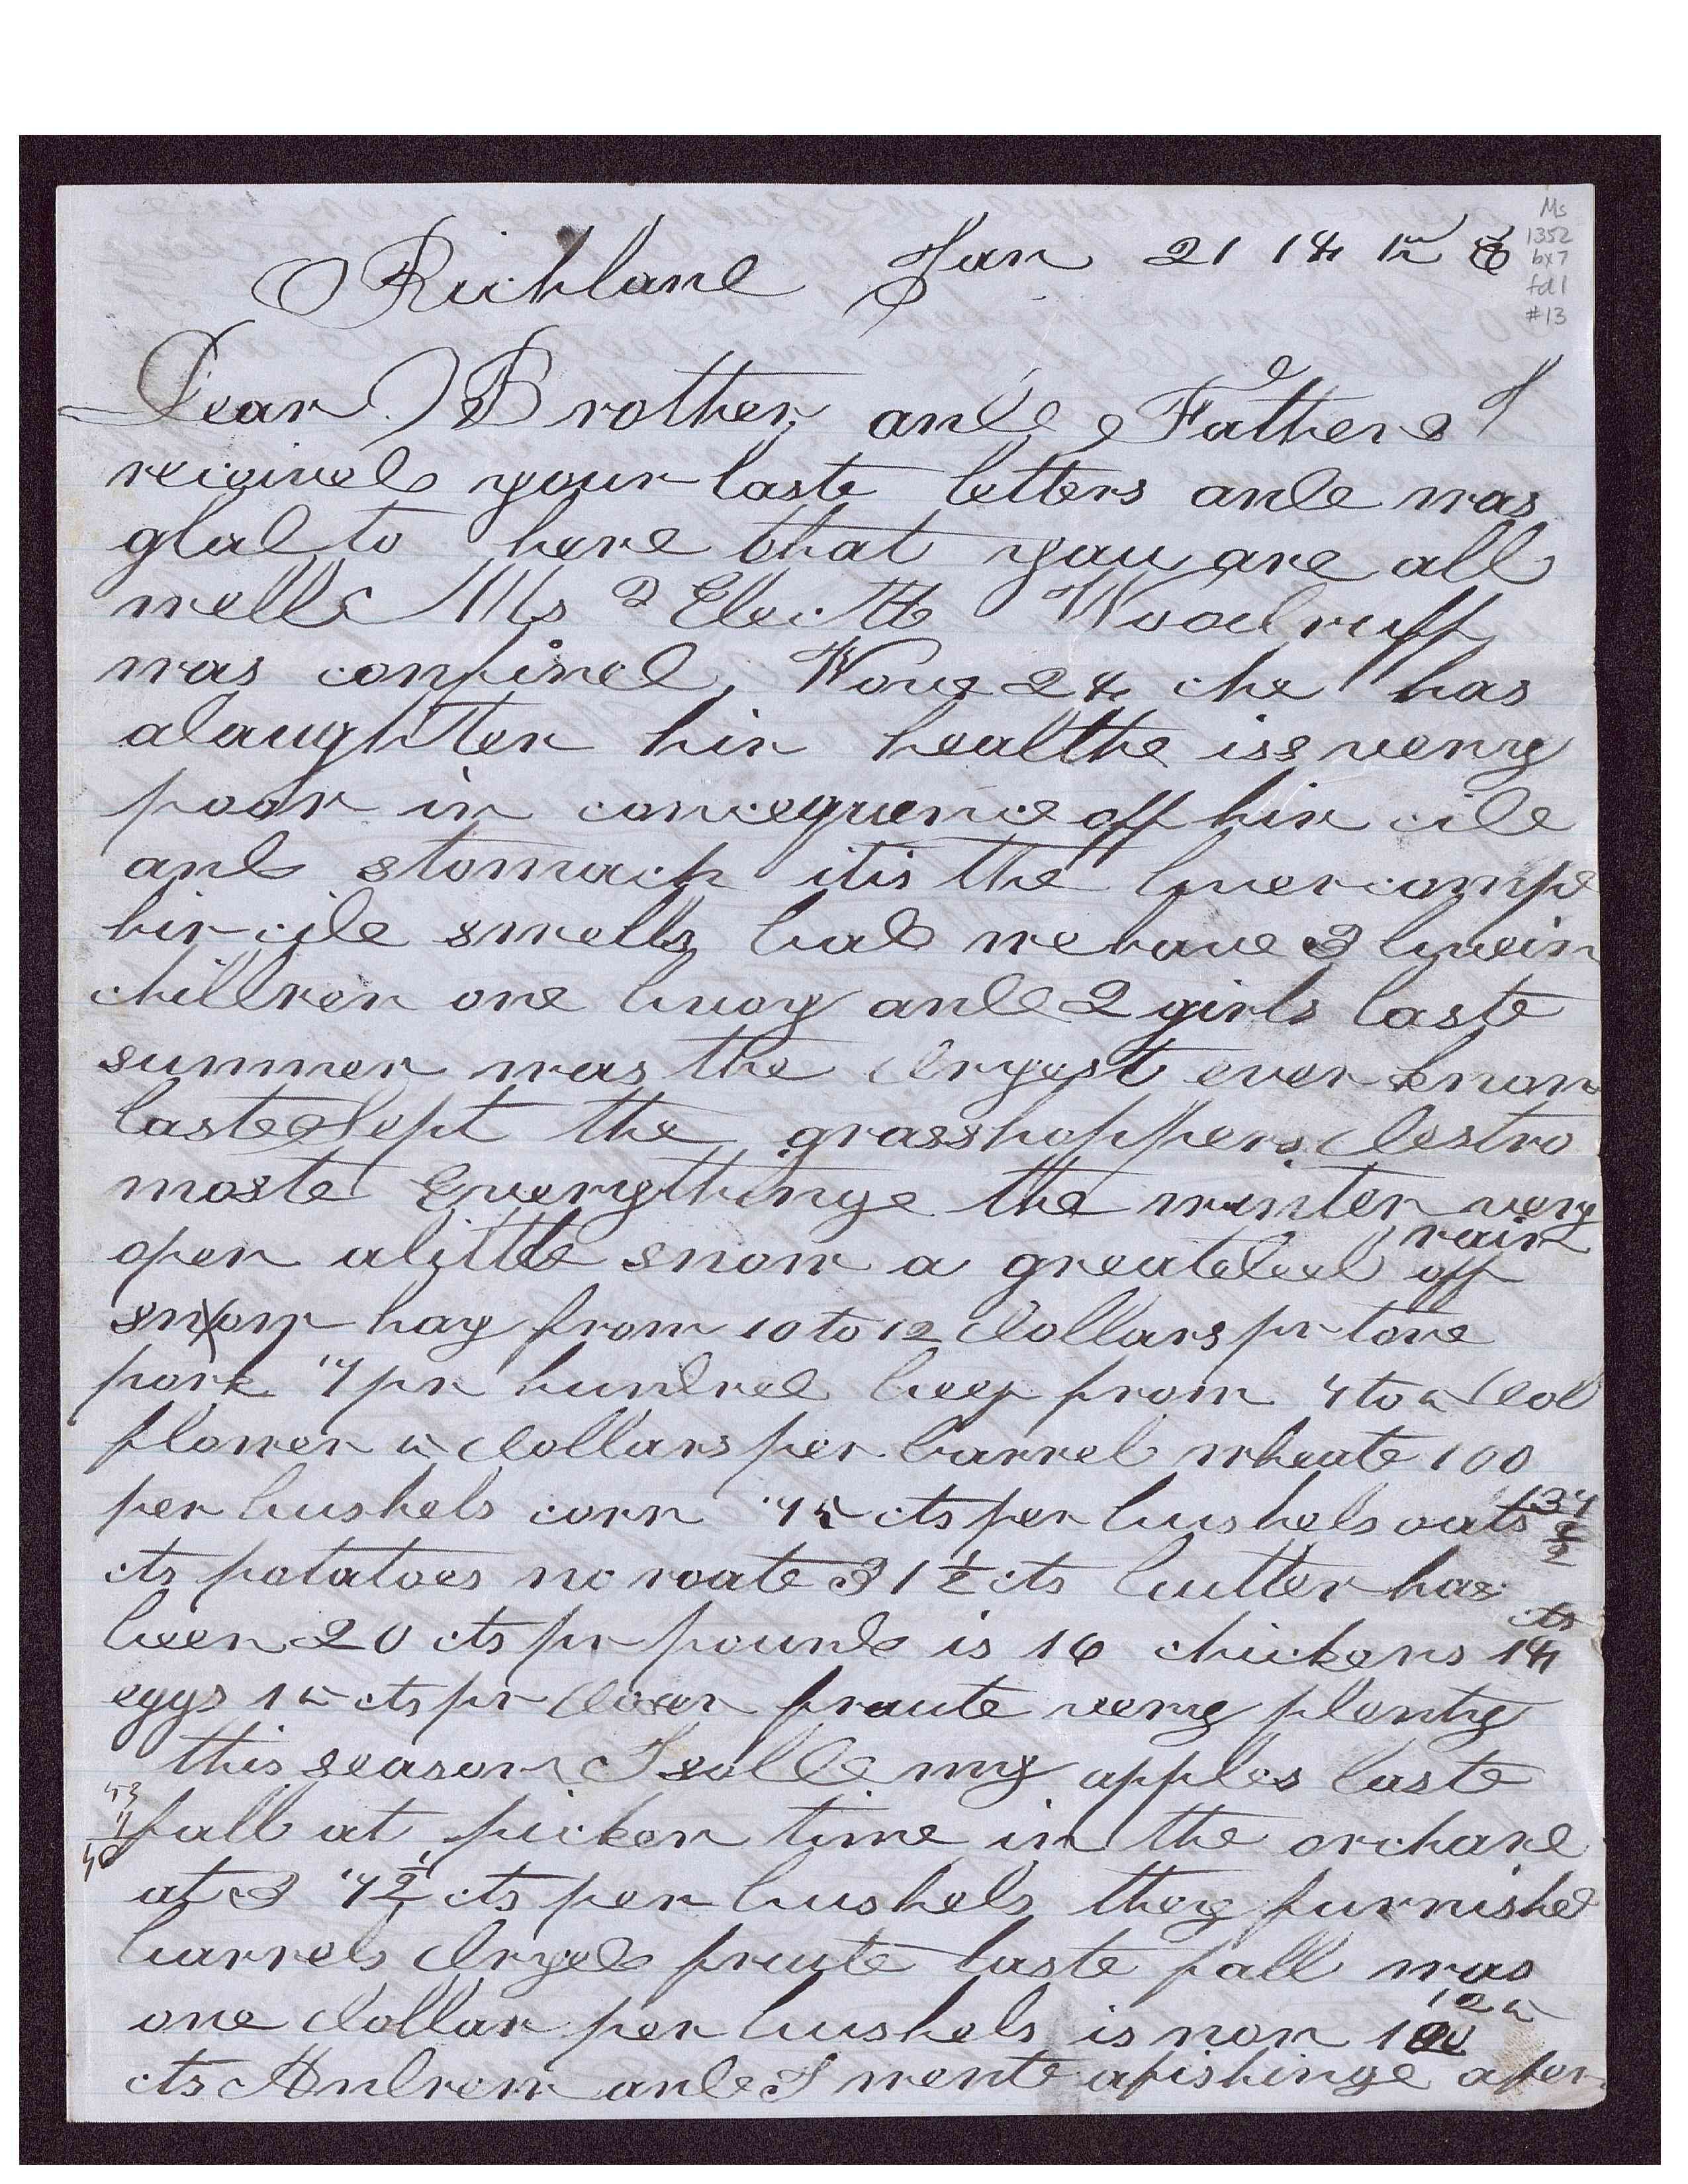 Richland Jan 21 18 55
Ms
1352
bx7
fd1
#13
Dear Brother and Fathers I
recived your laste letters and was
glad to here that you are all
wells Ms Elecitt Woodruff
was confined Nove 24 che has
a daughter hir healthe iss very
poor in concequence off hir cide
and stomach itis the liver compe
hir cide smells bad we have 3 livein
children one buoy and 2 girls laste
summer was the dryest ever know
laste Sept the grasshoppers destro
moste everythinge the winter very
open a little snow a greatedeel off rain
snow hay from 10 to 12 dollars pr tone
pork 4 pr hundred beef from 4 to 5 dol
flower 5 dollars per barrel wheate 100
per bushels corn 45 cts per bushels oats 34
cts potatoes no roate 31 1/2 cts butter has
been 20 cts pr pound is 16 chickens 14 cts
eggs 15 cts pr dozen fraute very plenty
this season I solde my apples laste
fall at picken time in the orchard
at 3 42 1/2 cts per bushels they furnished
barrels dryed fruite laste fall was
one dollar per bushels is now 125
cts Andrew and I wente afishinge a fer